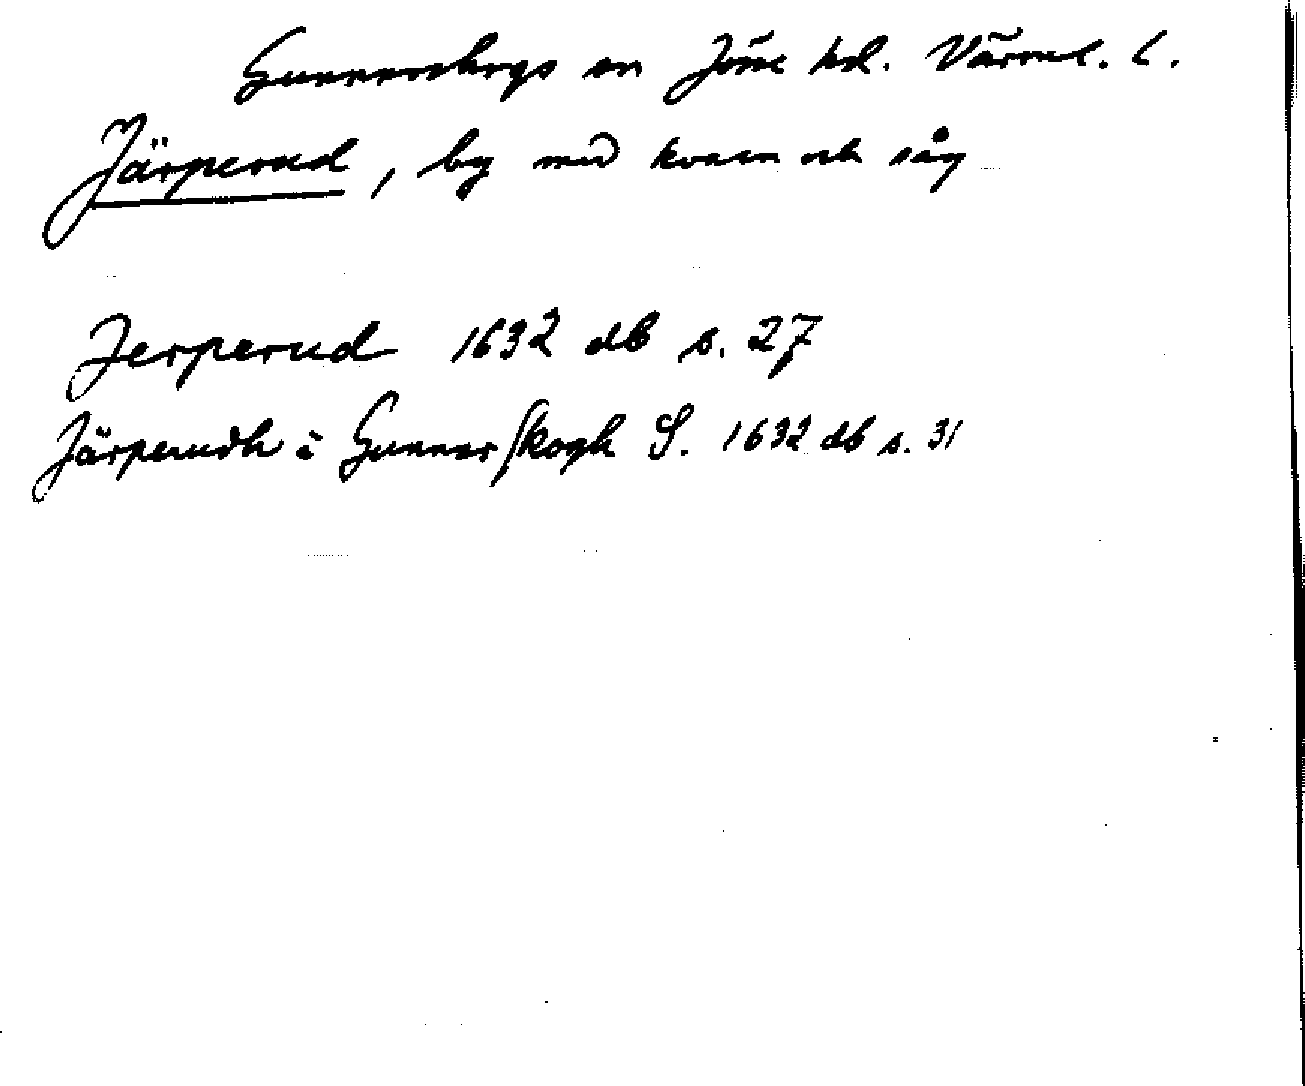 Gunnarskogs sn Jösse hd. Värml. l.
Järperud, by med kvarn och såg
Jerperud 1632 db s. 27
Järperudh i Gunnarskogh S. 1632 db s. 31